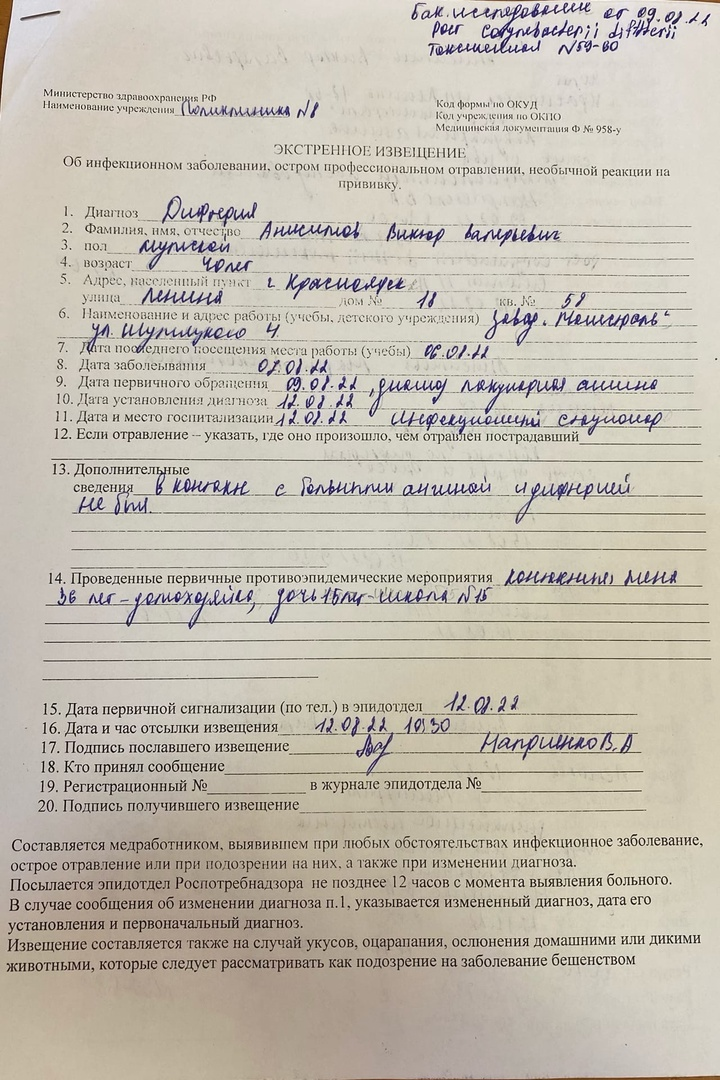 Бак. исследование от 09.08.22
Рост Corynebacterii difterii
Токсигенная №59-60
Министерство здравоохранения РФ
Наименование учреждения Поликлиника №8
Код формы по ОКУД
Код учреждения по ОКПО
Медицинская документация Ф № 958-у
ЭКСТРЕННОЕ ИЗВЕЩЕНИЕ
Об инфекционном заболевании, остром профессиональном отравлении, необычной реакции на
прививку.
1. Диагноз Дифтерия
2. Фамилия, имя, отчество Анисимов Виктор Валерьевич
3. пол мужской
4. возраст 40 лет
5. Адрес, населенный пункт г Красноярск
улица Ленина дом № 18 кв. № 58
6. Наименование и адрес работы (учебы, детского учреждения) завод
ул. 4
7. Дата последнего посещения места работы (учебы) 06.08.22
8. Дата заболеывания 07.08.22
9. Дата первичного обращения 09.08.22, диагноз лакунарная ангина
10. Дата установления диагноза 12.08.22
11. Дата и место госпитализации 12.08.22 Инфекционный стационар
12. Если отравление – указать, где оно произошло, чем отравлен пострадавший
13. Дополнительные
сведения в контакте с больными ангиной и дифтерией
не был.
14. Проведенные первичные противоэпидемические мероприятия контактные: жена
36 лет - домохозяйка, дочь 15 лет - школа №15
15. Дата первичной сигнализации (по тел.) в эпидотдел 12.08.22
16. Дата и час отсылки извещения 12.08.22 10:30
17. Подпись пославшего извещение Наприенко В.А
18. Кто принял сообщение
19. Регистрационный № в журнале эпидотдела №
20. Подпись получившего извещение
Составляется медработником, выявившем при любых обстоятельствах инфекционное заболевание,
острое отравление или при подозрении на них, а также при изменении диагноза.
Посылается эпидотдел Роспотребнадзора не позднее 12 часов с момента выявления больного.
В случае сообщения об изменении диагноза п.1, указывается измененный диагноз, дата его
установления и первоначальный диагноз.
Извещение составляется также на случай укусов, оцарапания, ослюнения домашними или дикими
животными, которые следует рассматривать как подозрение на заболевание бешенством